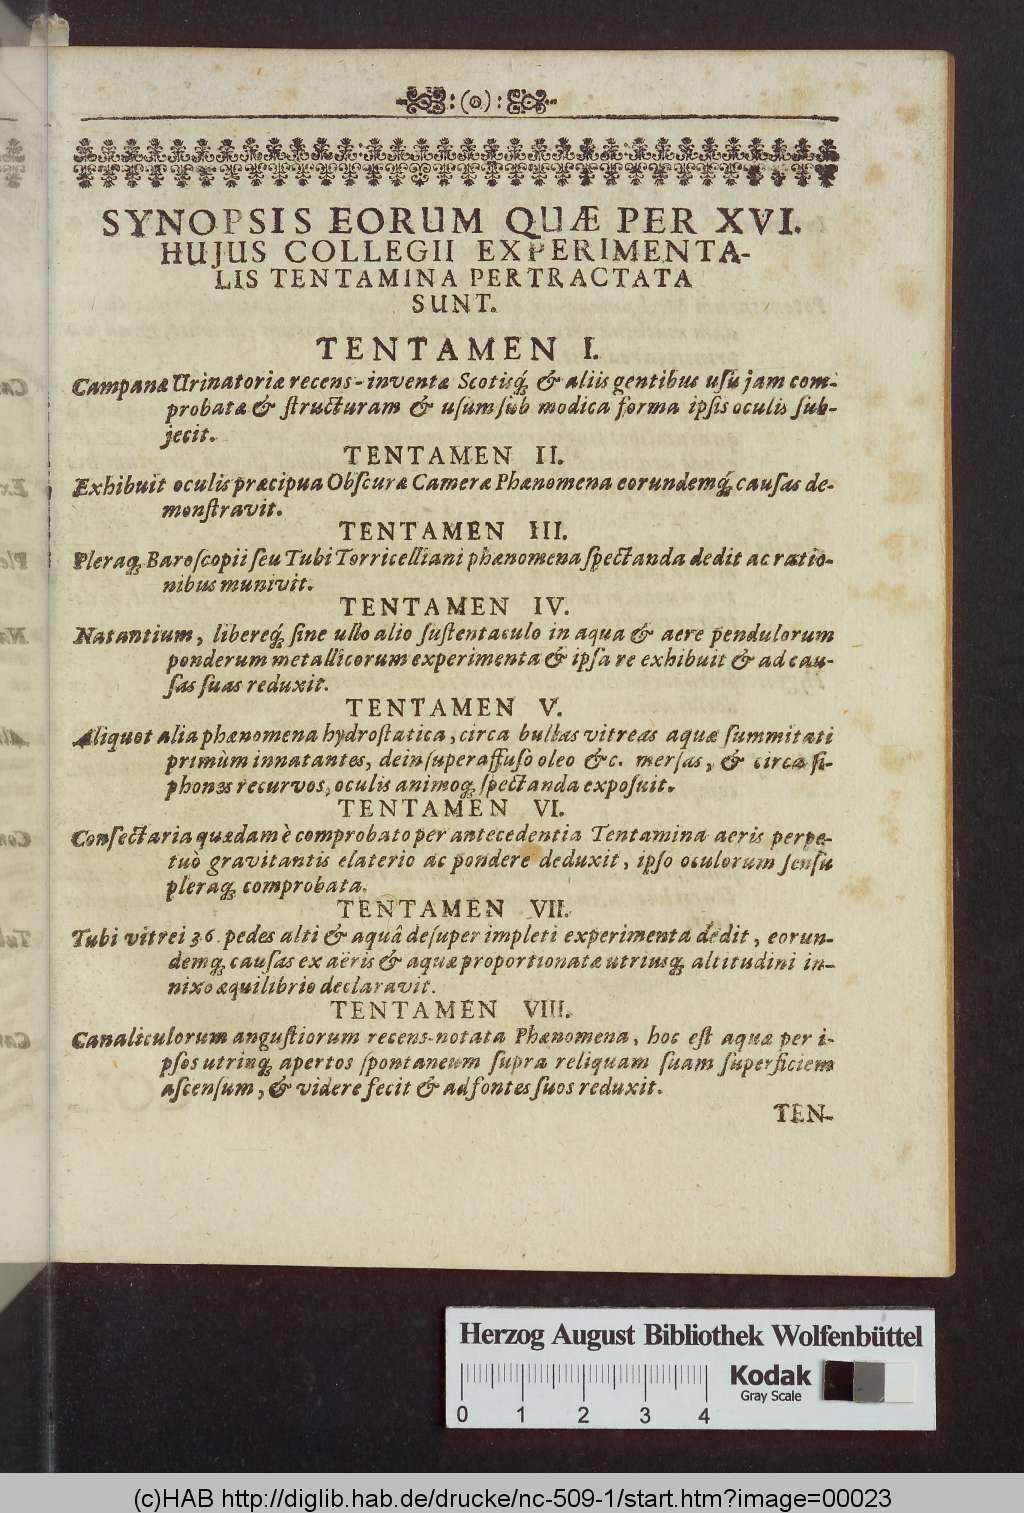 :(o):
SYNOPSIS EORUM QUÆ PER XVI.
HUJUS COLLEGII EXPERIMENTA-
LIS TENTAMINA PERTRACTATA
SUNT.
TENTAMEN I.
Campanæ Urinatoriæ recens-inventæ Scotisq́; & aliis gentibus uſu jam com-
probatæ & ſtructuram & uſum ſub modica forma ipſis oculis ſub-
jecit.
TENTAMEN II.
Exhibuit oculis præcipua Obſcuræ Cameræ Phænomena eorundemq́; cauſas de-
monſtravit.
TENTAMEN III.
Pleraq; Baroſcopii ſeu Tubi Torricelliani phænomena ſpectanda dedit ac ratio-
nibus munivit.
TENTAMEN IV.
Natantium, libereq́; ſine ullo alio ſuſtentaculo in aqua & aere pendulorum
ponderum metallicorum experimenta & ipſa re exhibuit & ad cau-
ſas ſuas reduxit.
TENTAMEN V.
Aliquot alia phænomena hydroſtatica, circa bullas vitreas aquæ ſummitati
primùm innatantes, dein ſuperaffuſo oleo &c. merſas, & circa ſi-
phones recurvos, oculis animoq; ſpectanda expoſuit.
TENTAMEN VI.
Conſectaria quædam è comprobato per antecedentia Tentamina aeris perpe-
tuò gravitantis elaterio ac pondere deduxit, ipſo oculorum ſenſu
pleraq; comprobata.
TENTAMEN VII.
Tubi vitrei 36. pedes alti & aquâ deſuper impleti experimenta dedit, eorun-
demq; cauſas ex aëris & aquæ proportionatæ utriusq; altitudini in-
nixo æquilibrio declaravit.
TENTAMEN VIII.
Canaliculorum anguſtiorum recens-notata Phænomena, hoc eſt aquæ per i-
pſos utrinq; apertos ſpontaneum ſupra reliquam ſuam ſuperficiem
aſcenſum, & videre fecit & ad fontes ſuos reduxit.
TEN-
Herzog August Bibliothek Wolfenbüttel
Kodak
Gray Scale
0 1 2 3 4
(c)HAB http://diglib.hab.de/drucke/nc-509-1/start.htm?image=00023